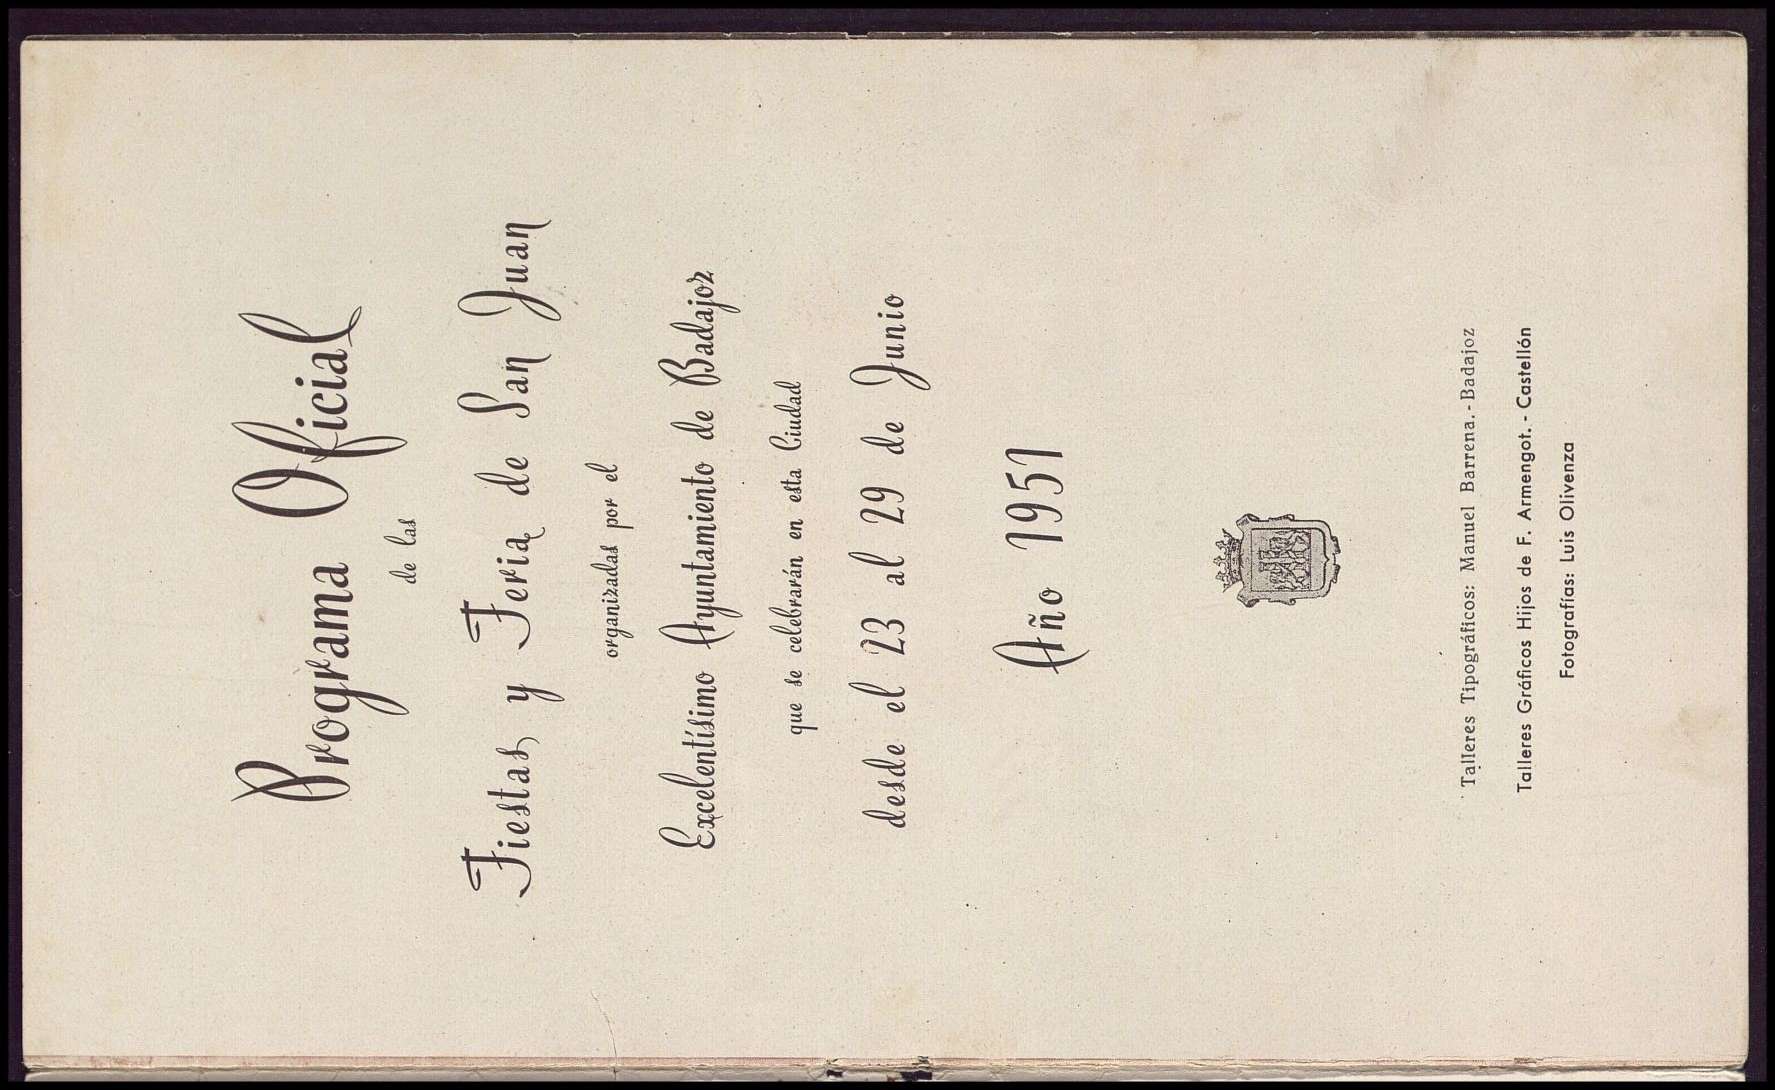 Programa Oficial
de las
Fiestas y Feria de San Juan
organizadas por el
Excelentísimo Ayuntamiento de Badajoz
que se celebrarán en esta Ciudad
desde el 23 al 29 de Junio
Año 1951
Talleres Tipográficos: Manuel Barrena.-Badajoz
Talleres Gráficos Hijos de F. Armengot. - Castellón
Fotografías: Luis Olivenza